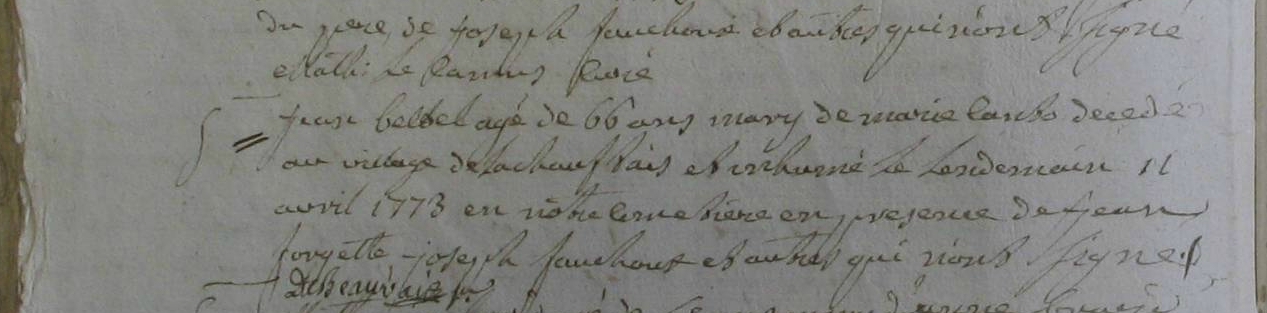 du pere, de joseph fauchoux et autres qui n'ont signé
Le Camus curé
jean belbel agé de 66 ans mary de marie decedé
au village de et inhumé le lendemain 11
avril 1773 en nôtre cimetiere en presence de jean
forgette joseph fauchoux et autres qui n'ont signé
DeBeauvais